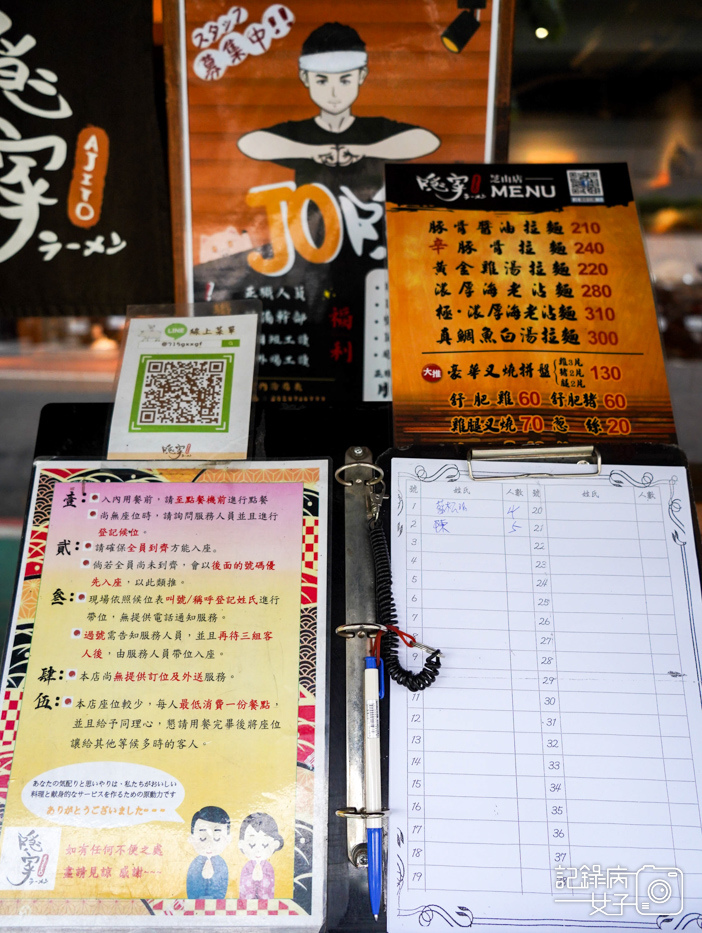 隱家
AJITO
ラーメン
スタッフ
募集中!!
JO
福利
隱家
ラーメン
芝山店
MENU
豚骨醬油拉麵 210
辛豚骨拉麵 240
黃金雞湯拉麵 220
濃厚海老沾麵 280
極・濃厚海老沾麵 310
真鯛魚白湯拉麵 300
大推 豪華叉燒拼盤 130
舒肥雞60 舒肥豬60
雞腿叉燒70 蔥絲20
LINE 線上菜單
隱家
壹：入內用餐前，請至點餐機前進行點餐
尚無座位時，請詢問服務人員並且進行
登記候位。
貳：請確保全員到齊方能入座。
倘若全員尚未到齊，會以後面的號碼優
先入座，以此類推。
叁：現場依照候位表叫號/稱呼登記姓氏進行
帶位，無提供電話通知服務。
過號需告知服務人員，並且再待三組客
人後，由服務人員帶位入座。
肆：本店尚無提供訂位及外送服務。
伍：本店座位較少，每人最低消費一份餐點，
並且給予同理心，懇請用餐完畢後將座位
讓給其他等候多時的客人。
あなたの気配りと思いやりは、私たちがおいしい
料理と献身的なサービスを作るための原動力です
ありがとうございました~~~
隱家
如有任何不便之處
盡請見諒 感謝~~~
號 姓氏 人數 號 姓氏 人數
1 4 20
2 陳 5 21
3 22
4 23
5 24
6 25
7 26
8 27
9 28
29
11 30
12 31
13 32
14 33
15 34
16 35
17 36
18 37
19 38
記錄病
女子